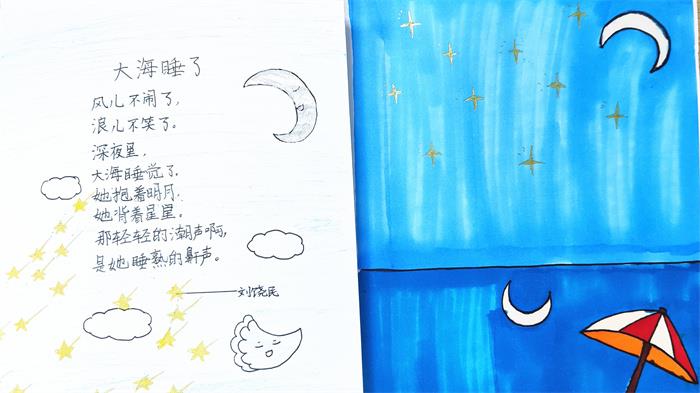 大海睡了
风儿不闹了,
浪儿不笑了。
深夜里,
大海睡觉了,
她抱着明月,
她背着星星。
那轻轻的潮声啊,
是她睡熟的鼾声。
——刘饶民